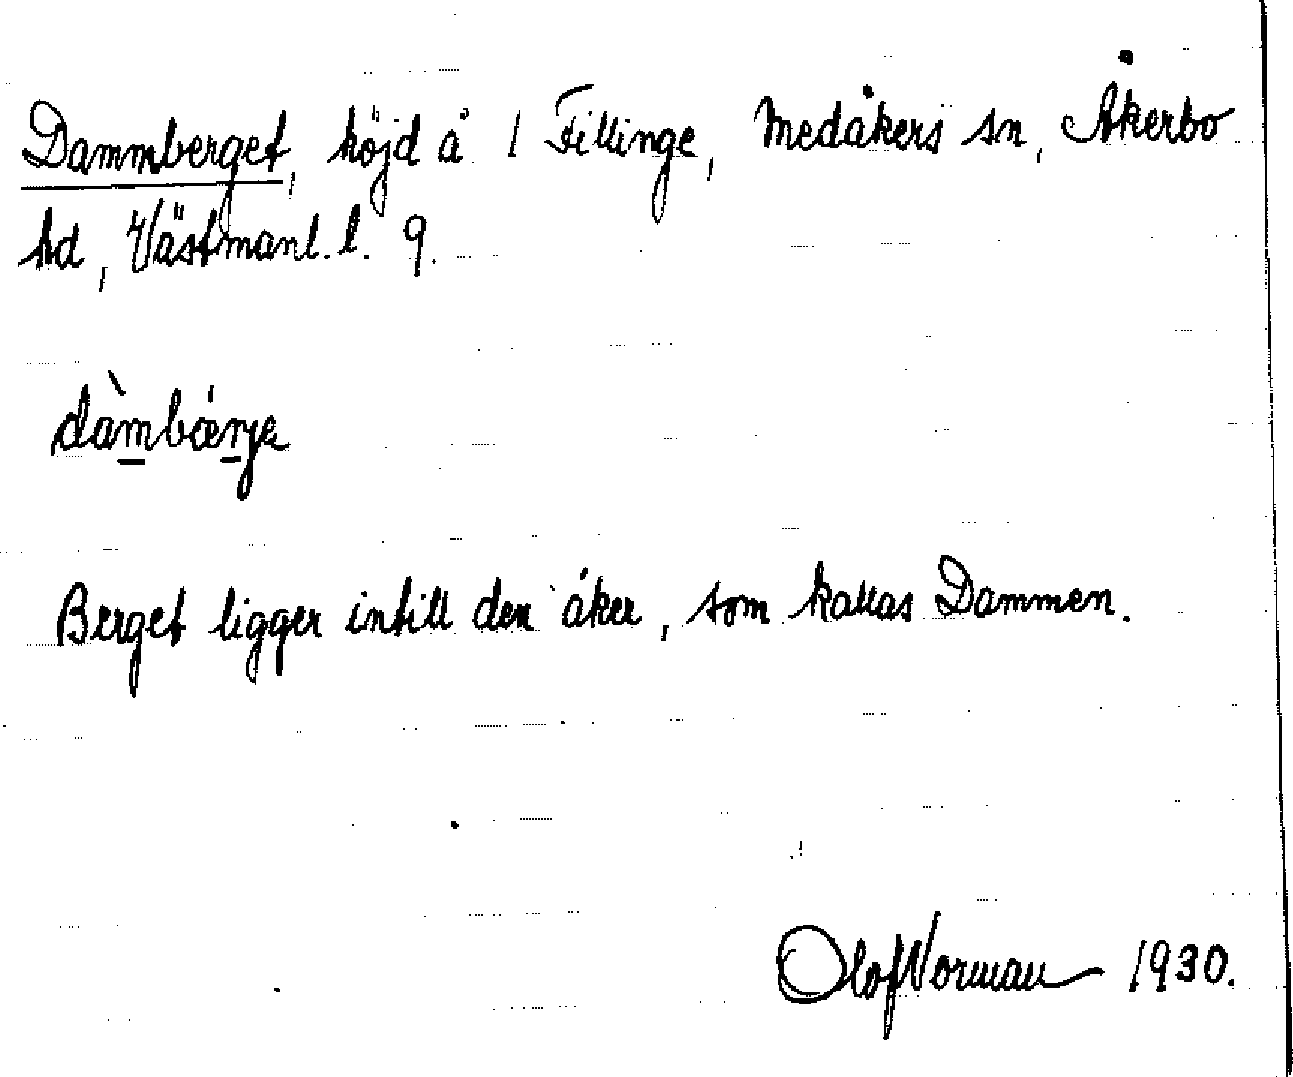 Dammberget, höjd å 1 Fillinge, Medåkers sn, Åkerbo
hd, Västmanl. l. 9.
dàmbærje
Berget ligger intill den åker, som kallas Dammen.
Olof Norman 1930.